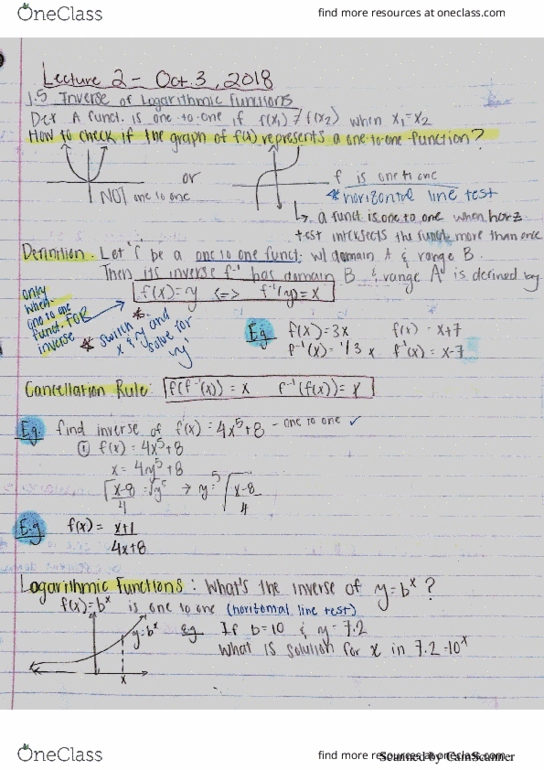 OneClass
find more resources at oneclass.com
Lecture 2 - Oct. 3, 2018
1.5 Inverse of Logarithmic Functions
Def A funct. is one-to-one if f(x1) ≠ f(x2) when x1=x2
How to check if the graph of f(x) represents a one-to-one-function?
NOT one to one
or
f is one to one
* horizontal line test
↳ a funct is one to one when horz
test intersects the funct more than once
Definition. Let 'f' be a one to one funct. w/ domain A & range B.
Then its inverse f⁻¹ has domain B & range A is defined by
f(x)=y <=> f⁻¹(y)=x
only
when
one to one
funct. FOR
inverse
* switch
x & y and
solve for
'y'
Eg f(x)=3x f(x) = x+7
f⁻¹(x) = 1/3 x f⁻¹(x) = x-7
Cancellation Rule: f(f⁻¹(x)) = x f⁻¹(f(x)) = x
Eg. find inverse of f(x) = 4x⁵+8 - one to one ✓
① f(x) = 4x⁵+8
x = 4y⁵+8
√x-8/4 = √y⁵ → y = ⁵√x-8/4
E.g f(x) = x+1/4x+8
Logarithmic Functions: What's the inverse of y=bˣ?
f(x)=bˣ is one to one (horizontal line test)
y=bˣ
x
eg If b=10 & y=7.2
What is solution for x in 7.2=10ˣ
OneClass
find more resources at oneclass.com
Scanned by CamScanner